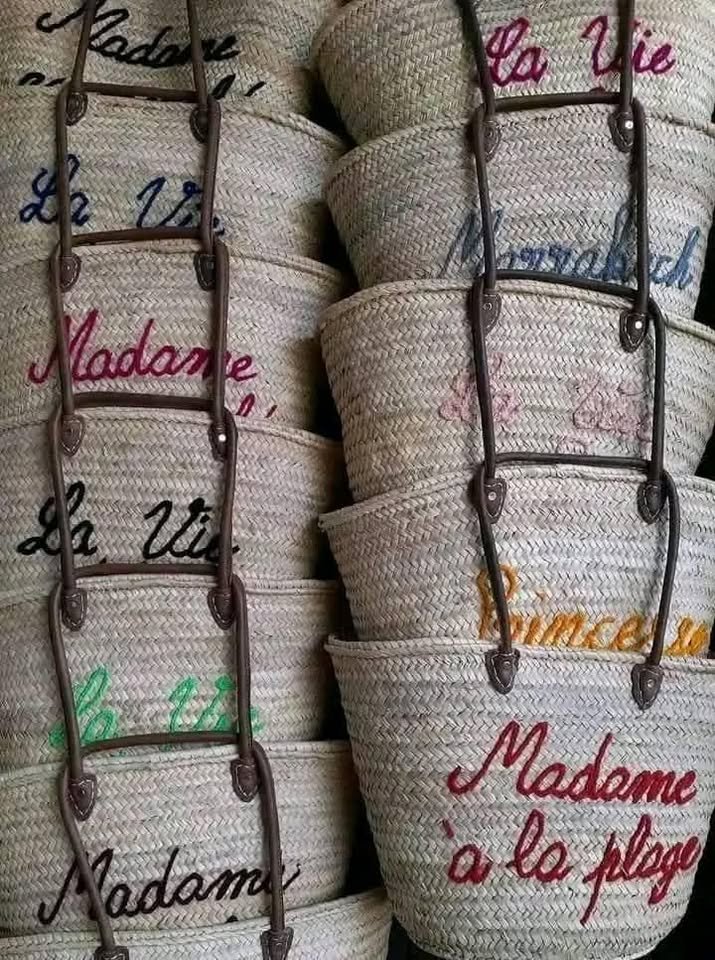 Madame
La Vie
Madame
La Vie
La Vie
Madame
La Vie
Marrakech
La Vie
Princesse
Madame
à la plage